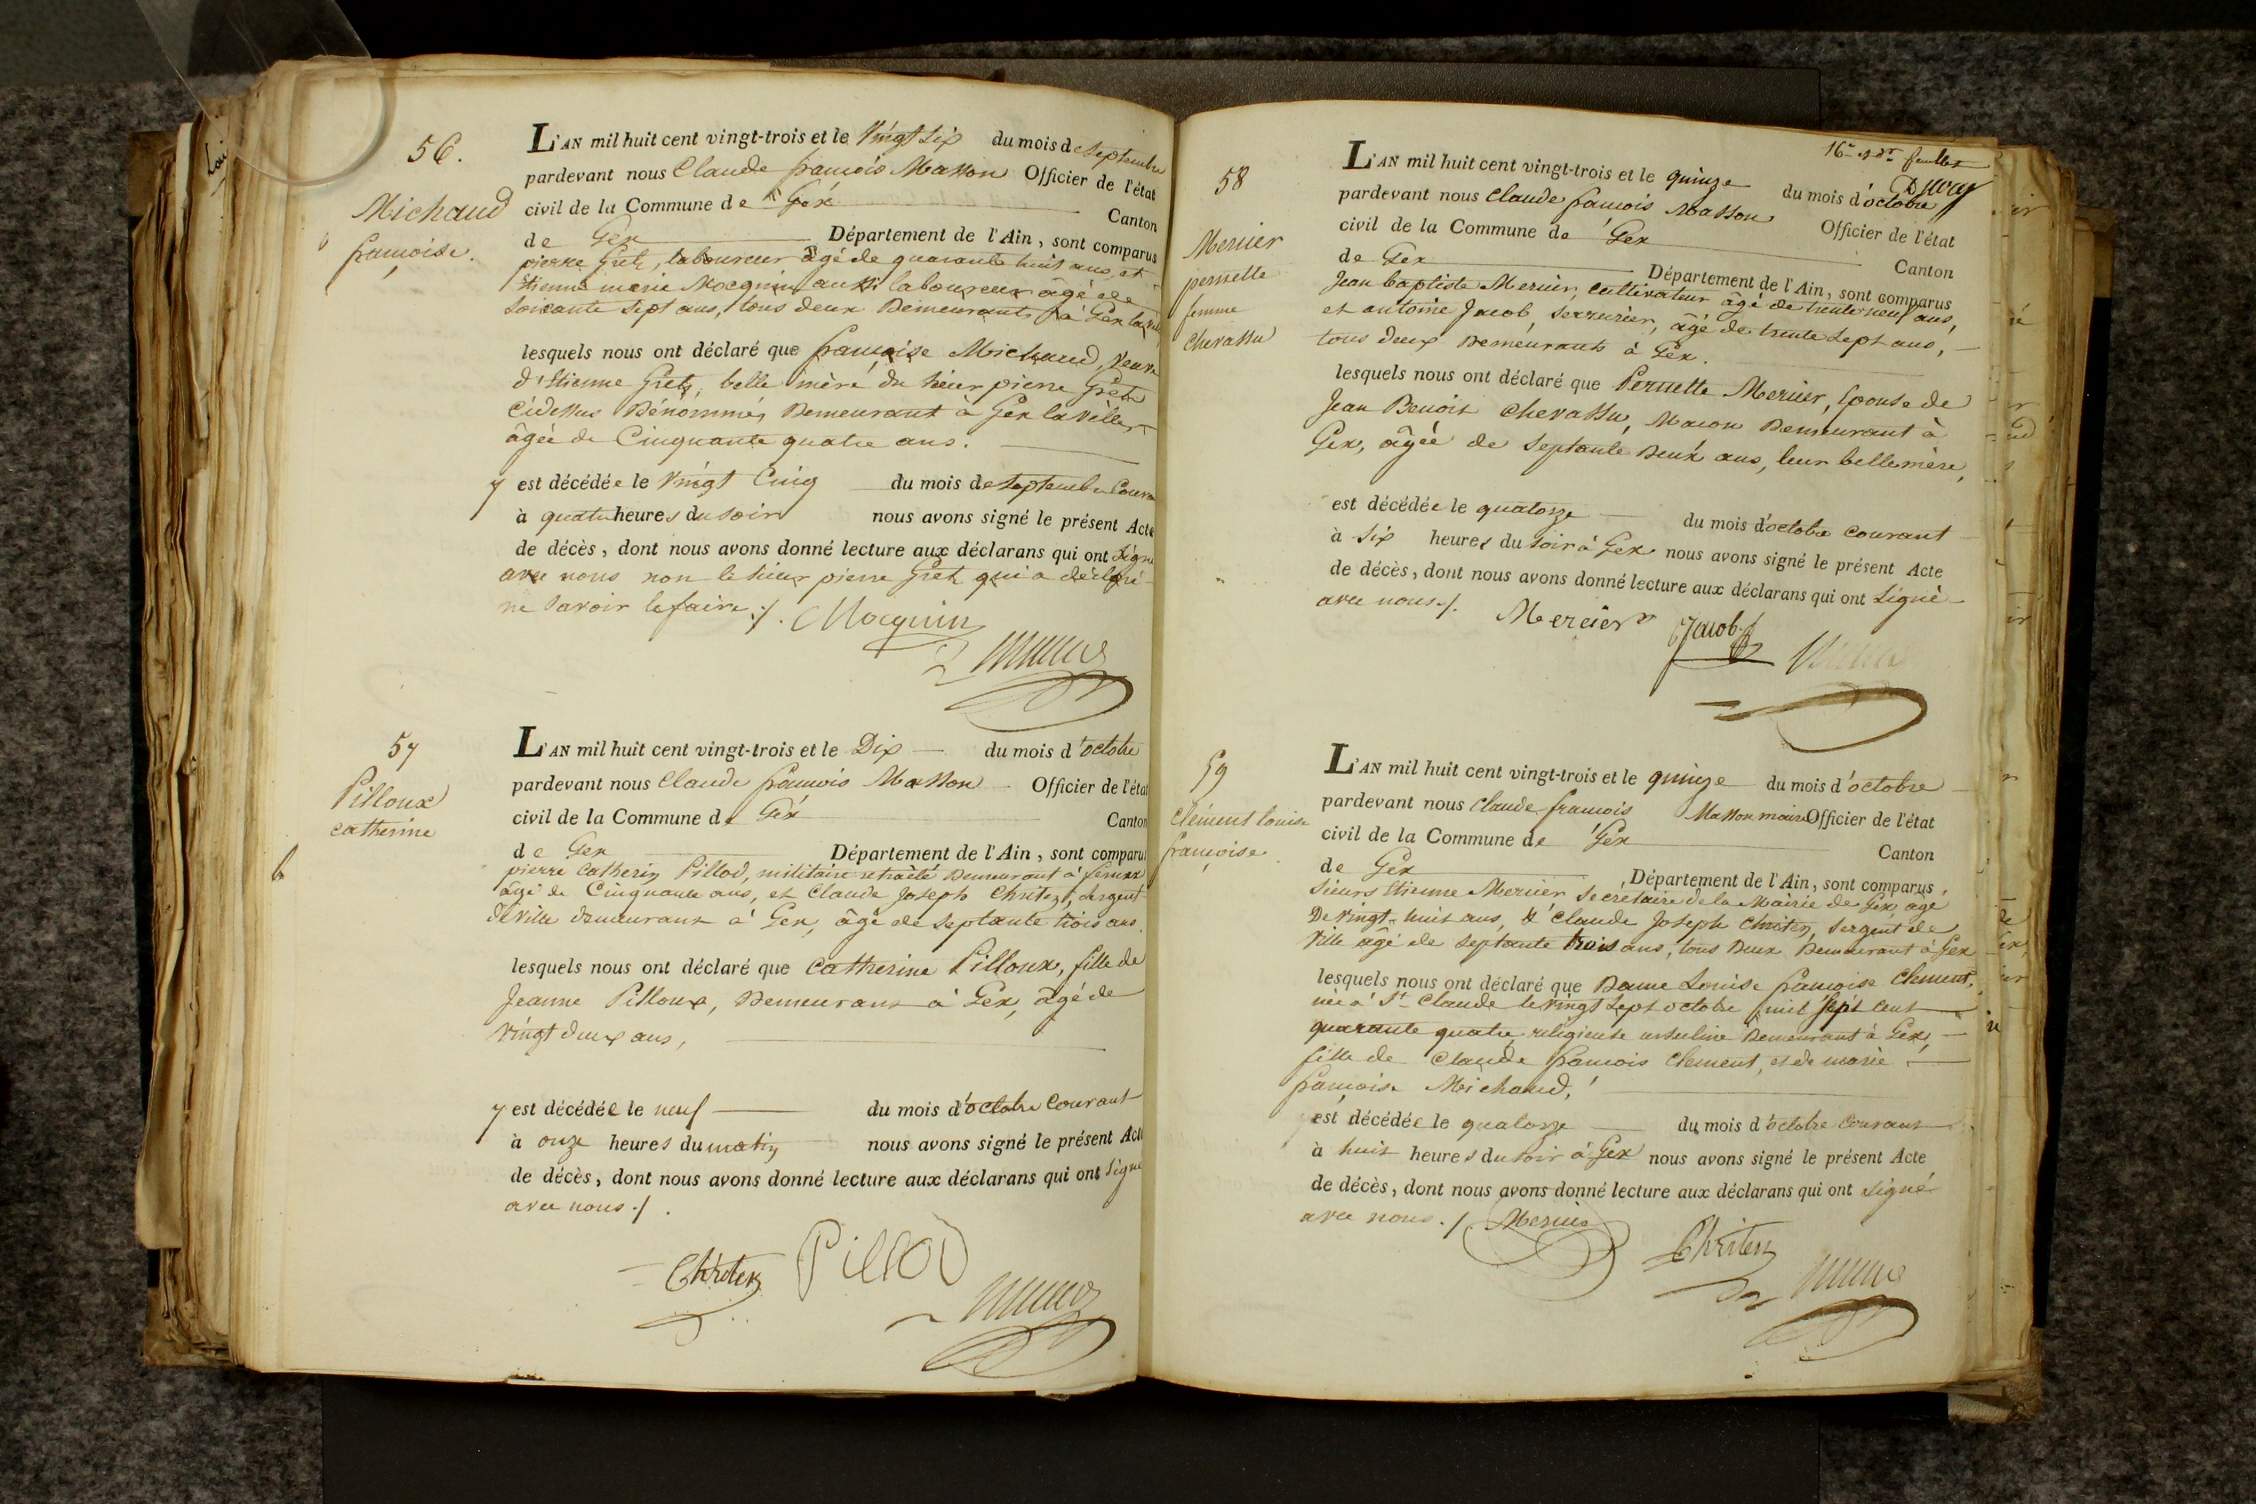 56.
Michaud
françoise.
L'AN mil huit cent vingt-trois et le Vingt Six du mois de Septembre
pardevant nous Claude françois Masson Officier de l'état
civil de la Commune de Gex Canton
de Gex Département de l'Ain, sont comparus
pierre Gretz, laboureur âgé de quarante huit ans, et
Etienne marie Mocquin aussi laboureur âgé de
soixante sept ans, tous deux Demeurants à Gex la ville
lesquels nous ont déclaré que françoise Michaud, veuve
d'Etienne Gretz, belle mère du sieur pierre Gretz
cidessus Dénommé, Demeurant à Gex la ville
âgée de Cinquante quatre ans.
y est décédée le Vingt Cinq du mois de septembre Courant
à quatre heures du soir nous avons signé le présent Acte
de décès, dont nous avons donné lecture aux déclarans qui ont Signé
avec nous non le sieur pierre Gretz qui a déclaré
ne Savoir le faire ./. Mocquin
57
Pilloux
catherine
L'AN mil huit cent vingt-trois et le Dix du mois d'octobre
pardevant nous Claude françois Masson Officier de l'état
civil de la Commune de Gex Canton
de Gex Département de l'Ain, sont comparus
pierre Catherin Pillod, militaire retraité Demeurant à
âgé de Cinquante ans, et Claude Joseph Christez, sergent
de ville demeurant à Gex, âgé de septante trois ans.
lesquels nous ont déclaré que Catherine Pilloux, fille de
Jeanne Pilloux, Demeurant à Gex, âgé de
vingt deux ans,
y est décédée le neuf du mois d'octobre Courant
à onze heures du matin nous avons signé le présent Acte
de décès, dont nous avons donné lecture aux déclarans qui ont Signé
avec nous ./.
Christez Pillod
16e et der feuillet
58
Mercier
pernette
femme
chevassu
L'AN mil huit cent vingt-trois et le quinze du mois d'octobre
pardevant nous Claude françois Masson Officier de l'état
civil de la Commune de Gex Canton
de Gex Département de l'Ain, sont comparus
Jean baptiste Mercier, Cultivateur âgé de trente neuf ans,
et antoine Jacob, Serrurier, âgé de trente Sept ans,
tous deux Demeurants à Gex.
lesquels nous ont déclaré que Pernette Mercier, Epouse de
Jean Benoit Chevassu, Macon Demeurant à
Gex, âgée de Septante Deux ans, leur belle mère,
est décédée le quatorze du mois d'octobre courant
à Six heures du soir à Gex nous avons signé le présent Acte
de décès, dont nous avons donné lecture aux déclarans qui ont Signé
avec nous ./. Mercier Jacob
59
Clément Louise
françoise
L'AN mil huit cent vingt-trois et le quinze du mois d'octobre
pardevant nous Claude françois Masson maire Officier de l'état
civil de la Commune de Gex Canton
de Gex Département de l'Ain, sont comparus
sieurs Etienne Mercier, Secrétaire de la Mairie de Gex, âgé
De vingt-huit ans, & Claude Joseph Christez, Sergent de
Ville âgé de septante trois ans, tous Deux Demeurant à Gex
lesquels nous ont déclaré que Dame Louise françoise Clement,
née à St Claude le vingt Sept octobre mil Sept Cent
quarante quatre, religieuse ursuline Demeurant à Gex,
fille de Claude françois Clement, et de marie
françoise Michaud,
est décédée le quatorze du mois d'octobre Courant
à huit heures du soir à Gex nous avons signé le présent Acte
de décès, dont nous avons donné lecture aux déclarans qui ont signé
avec nous ./. Mercier
Christez